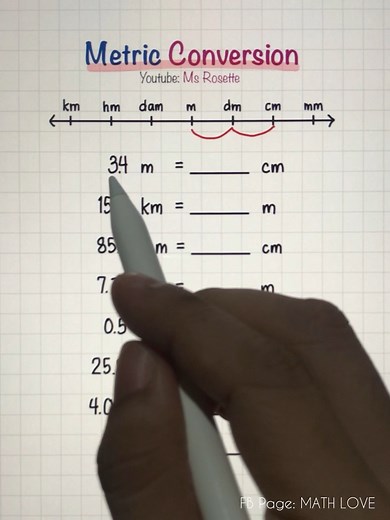 Metric Conversion
Youtube: Ms Rosette
km hm dam m dm cm mm
3.4 m = ______ cm
15 km = ______ m
85 m = ______ cm
7. = m
0.5
25.
4.0
FB Page: MATH LOVE